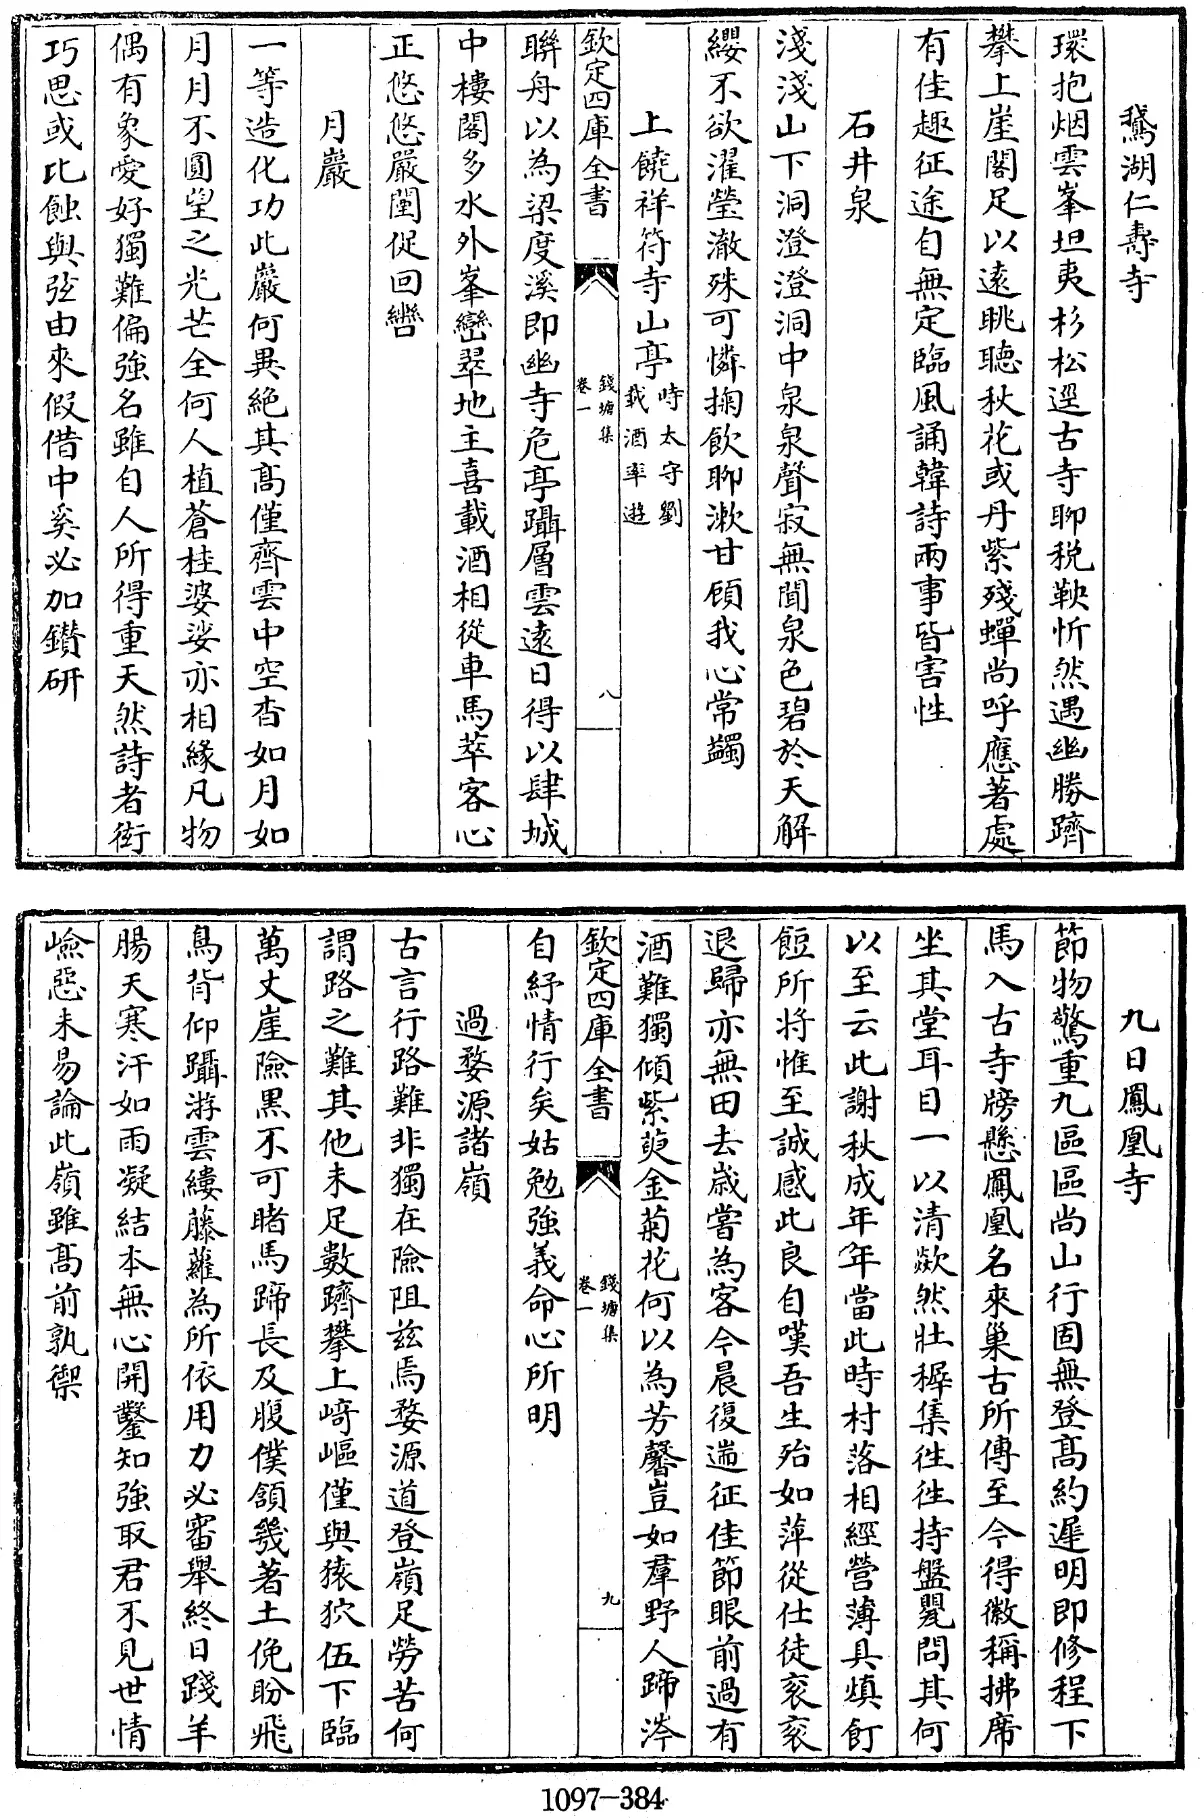 鵞湖仁壽寺
環抱烟雲峯坦夷杉松逕古寺聊税鞅忻然遇幽勝躋
攀上崖閣足以遠眺聽秋花或丹紫殘蟬尚呼應著處
有佳趣征途自無定臨風誦韓詩兩事皆害性
石井泉
淺淺山下洞澄澄洞中泉泉聲寂無聞泉色碧於天解
纓不欲濯瑩澈殊可憐掬飲聊漱甘顧我心常蠲
上饒祥符寺山亭時太守劉載酒率遊
欽定四庫全書
錢塘集
卷一
八
聯舟以為梁度溪即幽寺危亭躡層雲遠日得以肆城
中樓閣多水外峯巒翠地主喜載酒相從車馬萃客心
正悠悠嚴闉促回轡
月巖
一等造化功此巖何異絶其髙僅齊雲中空杳如月如
月月不圓望之光芒全何人植蒼桂婆娑亦相緣凡物
偶有象愛好獨難偏強名雖自人所得重天然詩者衒
巧思或比蝕與弦由來假借中奚必加鑚研
九日鳳凰寺
節物驚重九區區尚山行固無登髙約遲明即修程下
馬入古寺牓懸鳳凰名來巢古所傳至今得徽稱拂席
坐其堂耳目一以清歘然壯穉集徃徃持盤甖問其何
以至云此謝秋成年年當此時村落相經營薄具煩飣
餖所將惟至誠感此良自嘆吾生殆如萍從仕徒衮衮
退歸亦無田去嵗嘗為客今晨復遄征佳節眼前過有
酒難獨傾紫萸金菊花何以為芳馨豈如羣野人蹄涔
欽定四庫全書
錢塘集
卷一
九
自紓情行矣姑勉強義命心所明
過婺源諸嶺
古言行路難非獨在險阻兹焉婺源道登嶺足勞苦何
謂路之難其他未足數躋攀上﨑嶇僅與猿狖伍下臨
萬丈崖險黒不可睹馬蹄長及腹僕頷幾著土俛盼飛
鳥背仰躡游雲縷藤蘿為所依用力必審舉終日踐羊
腸天寒汗如雨凝結本無心開鑿知強取君不見世情
嶮惡未易論此嶺雖髙前孰禦
1097—384